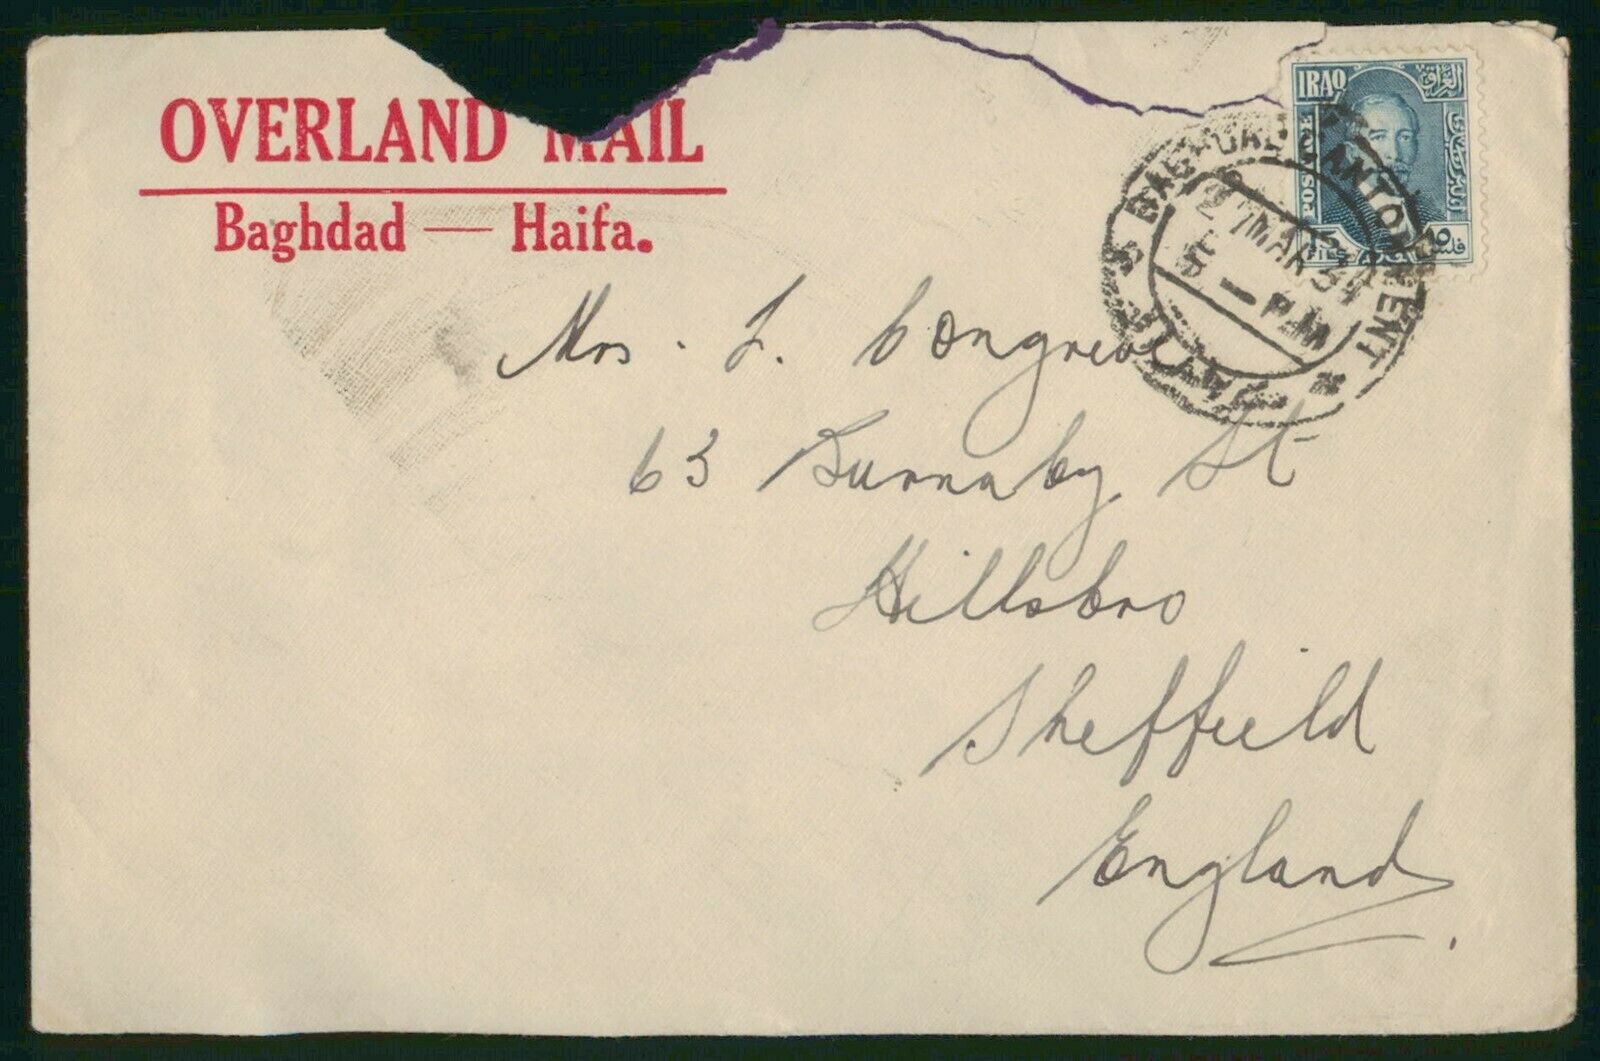 OVERLAND MAIL
Baghdad — Haifa.
IRAQ العراق
POSTAGE
15 ١٥
FILS فلس
BAGHDAD CANTONMENT
27 MAR 34
5 - P.M
Mrs. L. Congreve
63 Burnaby St
Hillsbro
Sheffield
England.